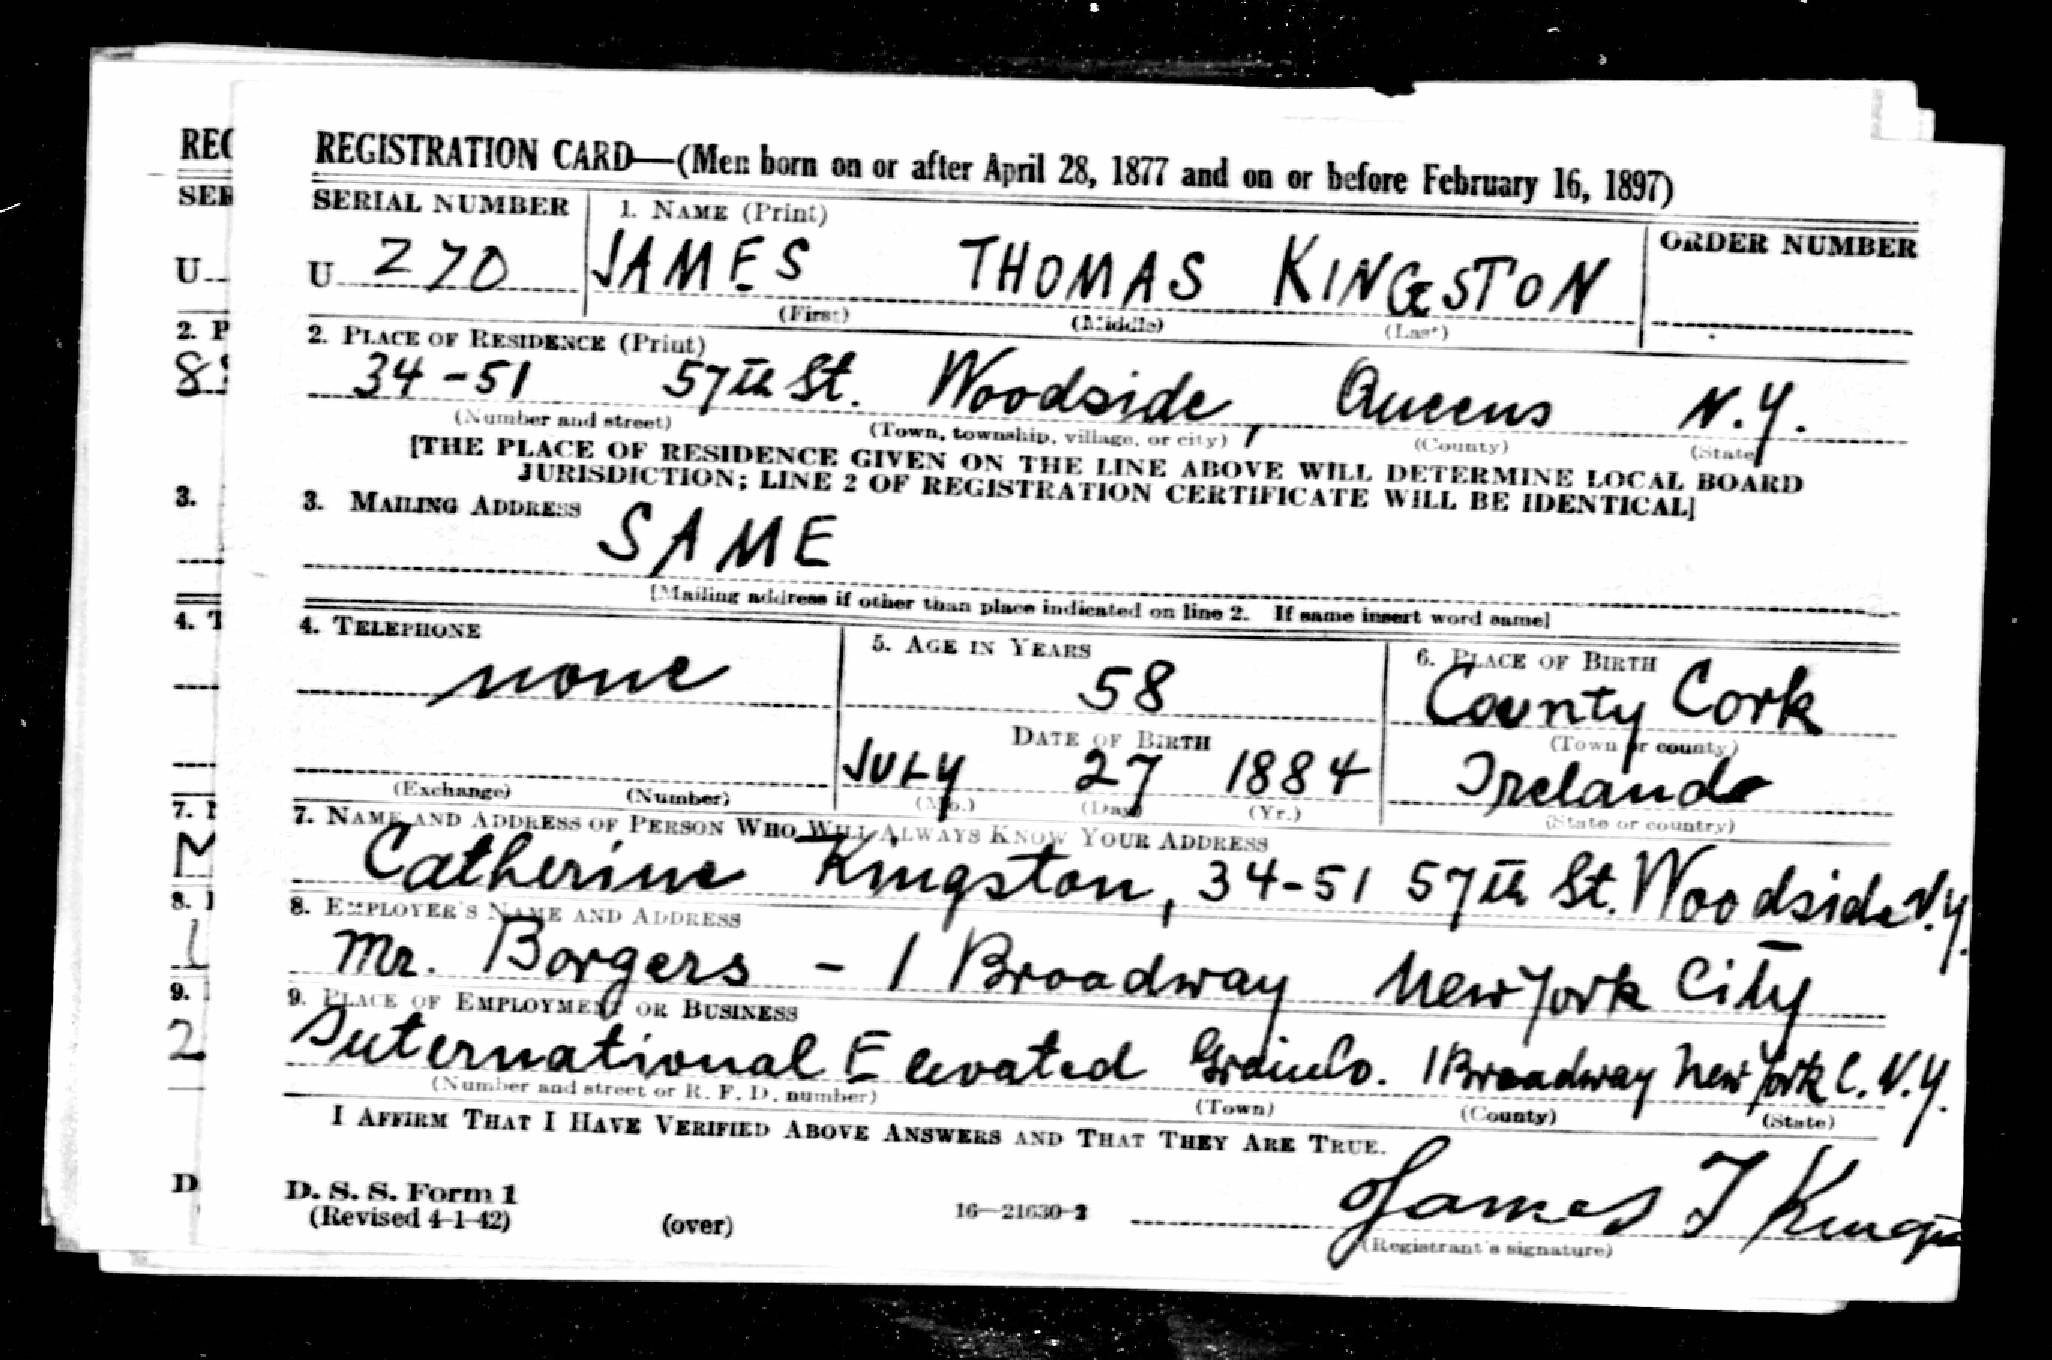 REGISTRATION CARD—(Men born on or after April 28, 1877 and on or before February 16, 1897)
SERIAL NUMBER 1. NAME (Print) ORDER NUMBER
U 270 JAMES THOMAS KINGSTON
(First) (Middle) (Last)
2. PLACE OF RESIDENCE (Print)
34-51 57th St. Woodside, Queens N.Y.
(Number and street) (Town, township, village, or city) (County) (State)
[THE PLACE OF RESIDENCE GIVEN ON THE LINE ABOVE WILL DETERMINE LOCAL BOARD
JURISDICTION; LINE 2 OF REGISTRATION CERTIFICATE WILL BE IDENTICAL]
3. MAILING ADDRESS
SAME
[Mailing address if other than place indicated on line 2. If same insert word same]
4. TELEPHONE 5. AGE IN YEARS 6. PLACE OF BIRTH
none 58 County Cork
DATE OF BIRTH (Town or county)
JULY 27 1884 Ireland
(Exchange) (Number) (Mo.) (Day) (Yr.) (State or country)
7. NAME AND ADDRESS OF PERSON WHO WILL ALWAYS KNOW YOUR ADDRESS
Catherine Kingston, 34-51 57th St. Woodside N.Y.
8. EMPLOYER'S NAME AND ADDRESS
Mr. Borgers - 1 Broadway New York City
9. PLACE OF EMPLOYMENT OR BUSINESS
International Elevated Grain Co. 1 Broadway New York C. N.Y.
(Number and street or R. F. D. number) (Town) (County) (State)
I AFFIRM THAT I HAVE VERIFIED ABOVE ANSWERS AND THAT THEY ARE TRUE.
D. S. S. Form 1
(Revised 4-1-42) (over) 16—21630-2 James T
(Registrant's signature)